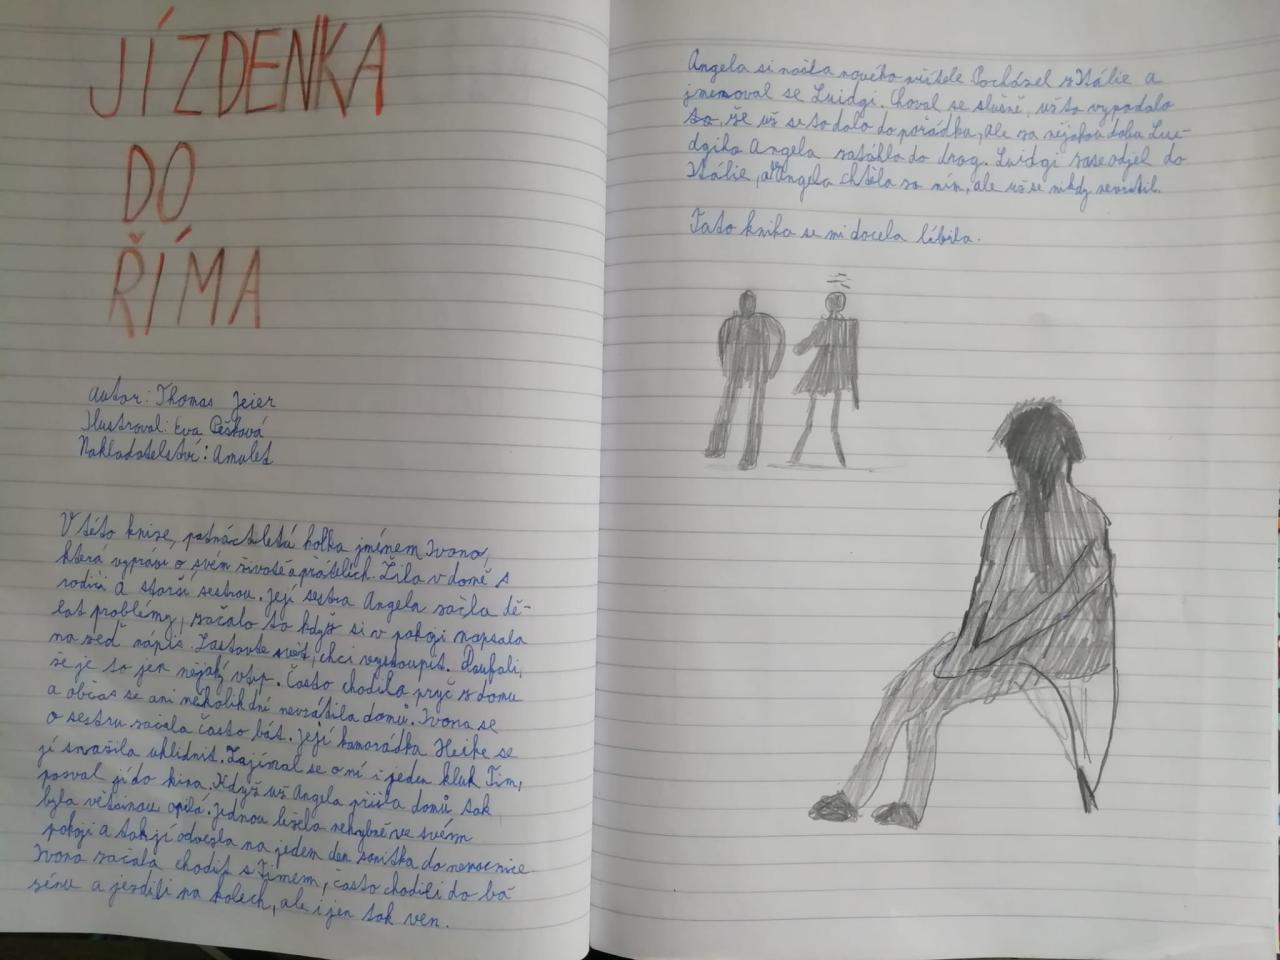 JÍZDENKA
DO
ŘÍMA
autor: Thomas Jeier
Ilustroval: Eva Pešková
Nakladatelství: Amulet
V této knize, patnáctiletá holka jménem Ivona,
která vypráví o svém životě a přátelích. Žila v domě s
rodiči a starší sestrou. Její sestra Angela začla dě-
lat problémy, začalo to když si v pokoji napsala
na zeď nápis. Zastavte svět, chci vystoupit. Doufali,
že je to jen nějaký vtip. Často chodila pryč z domu
a občas se ani několik dní nevrátila domů. Ivona se
o sestru začala často bát. Její kamarádka Heike se
jí snažila uklidnit. Zajímal se o ní i jeden kluk Tim,
pozval jí do kina. Když už Angela přišla domů tak
byla většinou opilá. Jednou ležela nehybně ve svém
pokoji a tak jí odvezla na jeden den sanitka do nemocnice.
Ivona začala chodit s Timem, často chodili do ba
zénu a jezdili na kolech, ale i jen tak ven.
Angela si našla nového přítele Pocházel z Itálie a
jmenoval se Luidgi. Choval se slušně, už to vypadalo
to, že už se to dalo do pořádku, ale za nějakou dobu Lui-
dgiho Angela zatáhla do drog. Luidgi zase odjel do
Itálie, a Angela chtěla za ním, ale už se nikdy nevrátil.
Tato kniha se mi docela líbila.